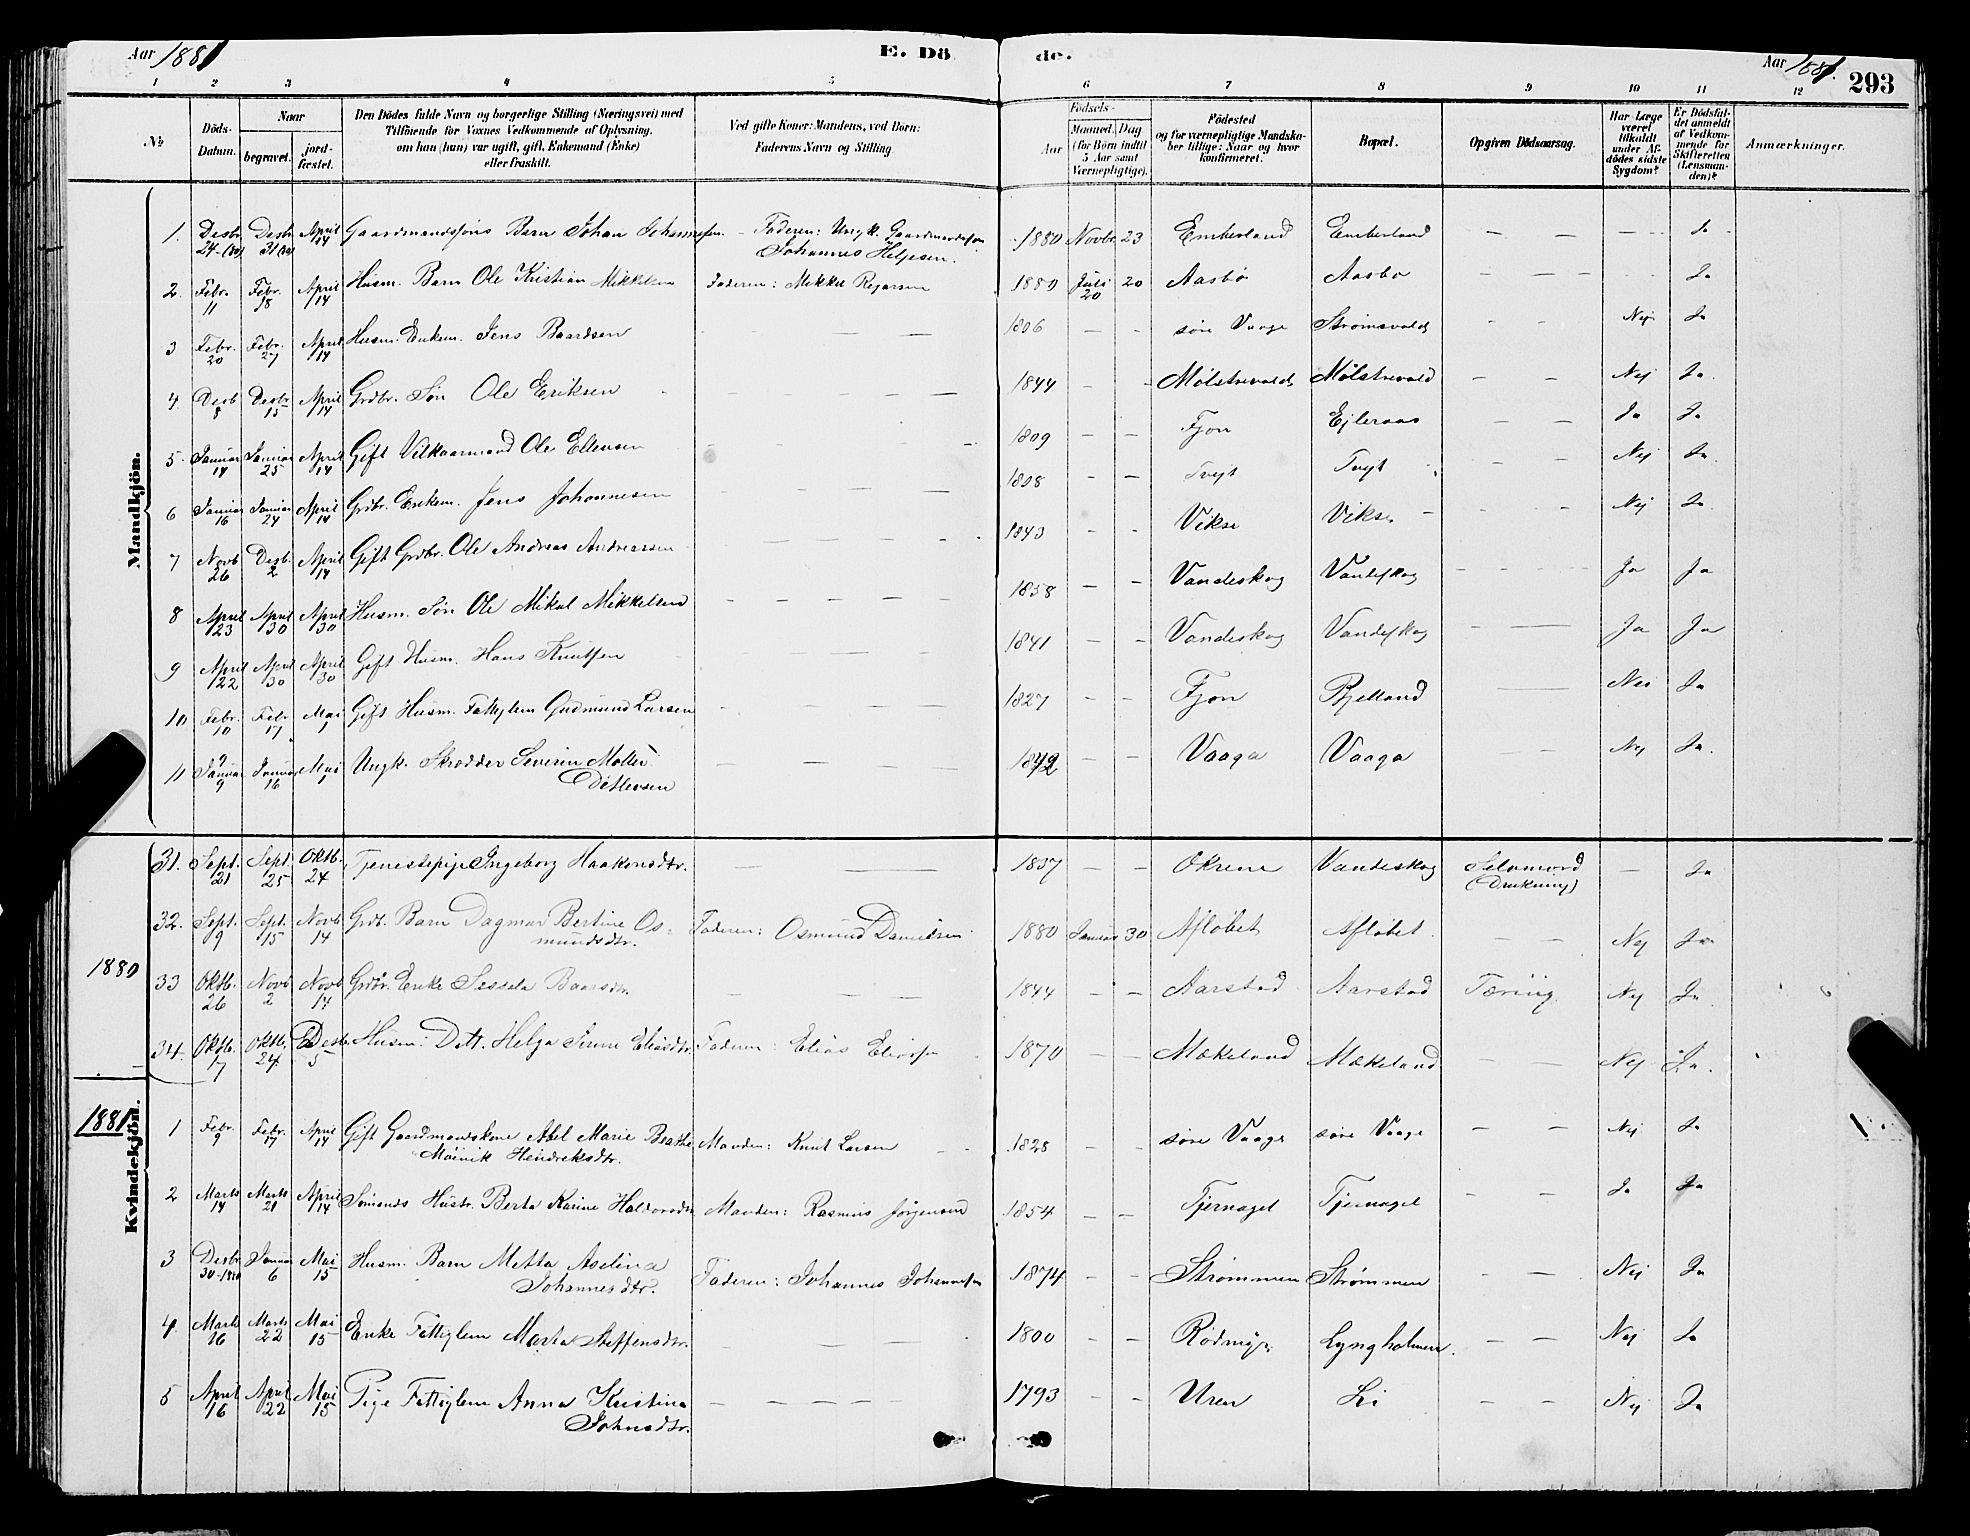 Aar 1881
E. Dö
de.
Aar 1881.
293
1 2 3 4 5 6 7 8 9 10 11 12
№
Döds-Datum.
Naar
begravet.
jord-fæstet.
Den Dödes fulde Navn og borgerlige Stilling (Næringsvei) med
Tilföiende for Voxnes Vedkommende af Oplysning,
om han (hun) var ugift, gift, Enkemand (Enke)
eller fraskilt.
Ved gifte Koner: Mandens, ved Börn:
Faderens Navn og Stilling.
Födsels-
Aar
Maaned. Dag
(for Börn indtil
5 Aar samt
Værnepligtige).
Födested
og for værnepligtige Mandska-
ber tillige: Naar og hvor
konfirmeret.
Bopæl.
Opgiven Dödsaarsag.
Har Læge
været
tilkaldt
under Af-
dödes sidste
Sygdom?
Er Dödsfal-
det anmeldt
af Vedkom-
mende for
Skifteretten
(Lensman-
den)?
Anmærkninger.
Mandkjön.
1. Desbr. 24-(80) Desbr 31(80) April 14 Gaardmandsföns Barn Johan Johannesen. - Faderen: Ungk. Gaardmandsfön 1880 Novbr. 23 Emberland Emberland - - - - Ja
Johannes Helgesen.
2. Febr. 11 Febr. 18 April 14 Husm. Barn Ole Kristian Mikkelsen Faderen: Mikkel Rejarsen 1880 Juli 20 20 Aasbø Aasbø - - - Ja
3 Febr. 20 Febr. 27 April 14 Husm. Enkem. Jens Baardsen - - - 1806 - - søre Vaage Strømsvold - - Nej Ja
4. Desb 8 Desbr. 15 April 14 Grdbr. Søn Ole Eriksen - - - 1844 - - Mølstrevold Mølstrevold - - Nej Ja.
5 Januar 14 Januar 25 April 14 Gift Vilkaarmand Ole Ellensen - - - 1809 - - Fjon Ejleraas - - Ja Ja
6 Januar 16 Januar 24 April 14 Grdbr. Enkem. Jens Johannesen - - - 1808 - - Tvejt Tvejt - - Nej Ja.
7 Novb 26 Desb. 2 April 14 Gift Grdbr. Ole Andreas Andreassen - - - 1843 - - Vikse Vikse - - Nej Ja.
8 April 23 April 30 April 30 Husm. Søn Ole Mikal Mikkelsen - - - 1858 - - Vandeskog Vandeskog - - Ja Ja
9 April 22 April 30 April 30 Gift Husm. Hans Knutsen - - - 1841 - - Vandeskog Vandeskog - - Ja Ja
10 Febr. 10 Febr. 17 Mai 1 Gift Husm. Fattiglem Gudmund Larsen - - - 1827 - - Fjon Bjelland - Nei Ja
11 Januar 9 Januar 16 Mai 1 Ungk. Skrædder Severin Møller - - - 1842 - - Vaaga Vaaga - - Nej Ja.
Ditlevsen
1880
31. Sept. 21 Sept. 25 Oktb. 24 Tjenestepige Ingeborg Haakonsdtr. - 1837 - - Økrene Vandeskog Selvmord - Ja
(Drukning)
32. Sept. 9 Sept. 15 Novb. 14 Grdb. Barn Dagmar Bertine Os= Faderen: Osmund Danielsen 1880 Januar 30 Afløbet Afløbet. - - Nej Ja
mundsdtr.
33 Oktb. 26 Novb 2 Novb 14 Grdbr. Enke Sessela Baarsdtr. - - - 1844 - - Aarstad Aarstad Tæring. Nej Ja.
34. Oktb. 17 Oktb. 24. Desb. 5 Husm. Datt. Helga Serine Eliasdtr. Faderen: Elias Eliassen 1870 - - Mækeland Mækeland - - Nej Ja.
1881
Kvindekjön.
1 Febr. 9 Febr. 17 April 14 Gift Gaardmandskone Abel Marie Beathe Manden: Knut Larsen 1825 - - søre Vaage søre Vaage - - Nej Ja
Møinik Hendreksdtr.
2 Marts 14 Marts 21 April 14 Sømands Hustr. Berta Karine Halvorsdtr. Manden: Rasmus Jørgensen 1854 - - Tjernagel Tjernagel - - Ja Ja
3 Desbr. 30-1880 Januar 6 Mai 15 Husm. Barn Metta Aselina Faderen: Johannes Johannessen 1874 - - Strømmen Strømmen - - Nej Ja
Johannesdtr.
4. Marts 16 Marts 22 Mai 15 Enke Fattiglem Marta Steffensdtr. - - - 1800 - - Rødmyr Lyngholmen. - - Nej Ja
5 April 16 April 22 Mai 15 Pige Fattiglem Anna Kristina - - - 1793 - - Uren Li - - Nej Ja
Johnsdtr.